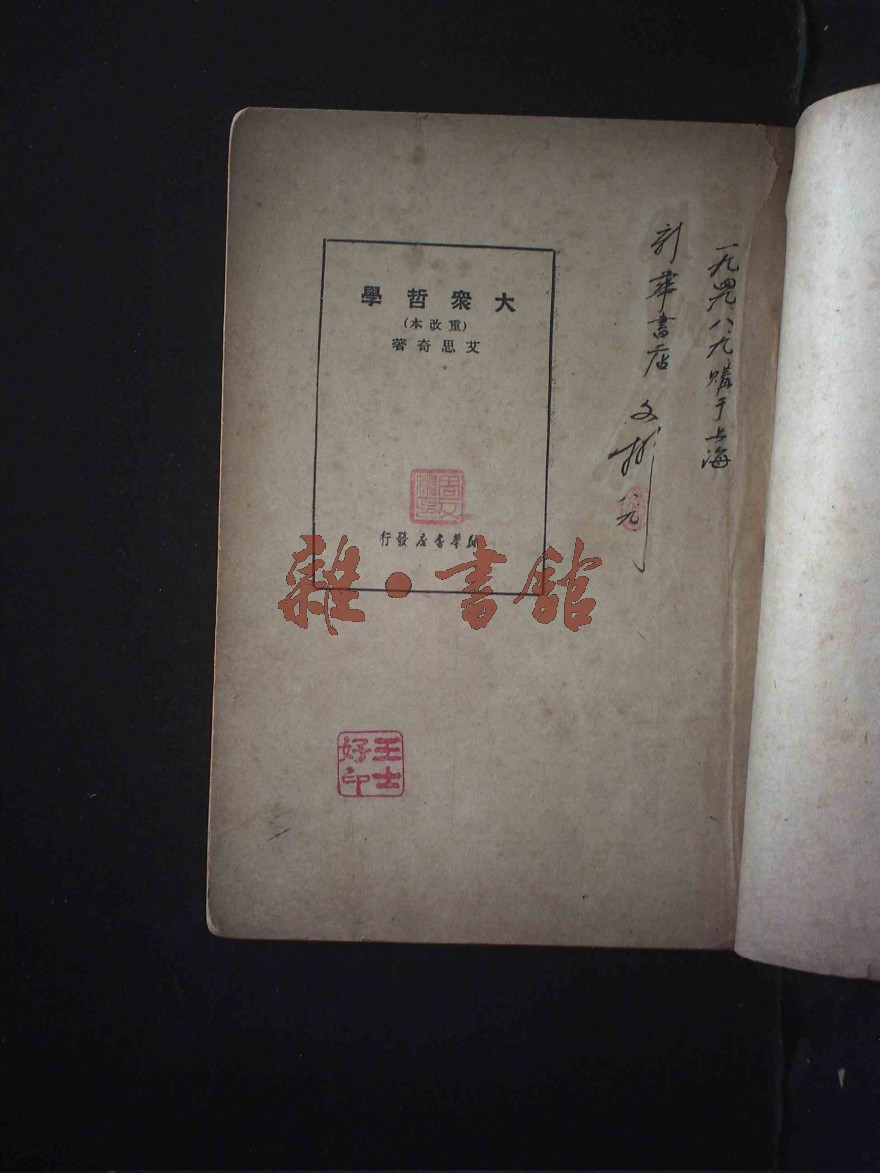 大衆哲學
(重改本)
艾思奇著
新華書店發行
一九四九.八.九購于上海
新華書店 文彬 八.九
王士好印
雜·書館